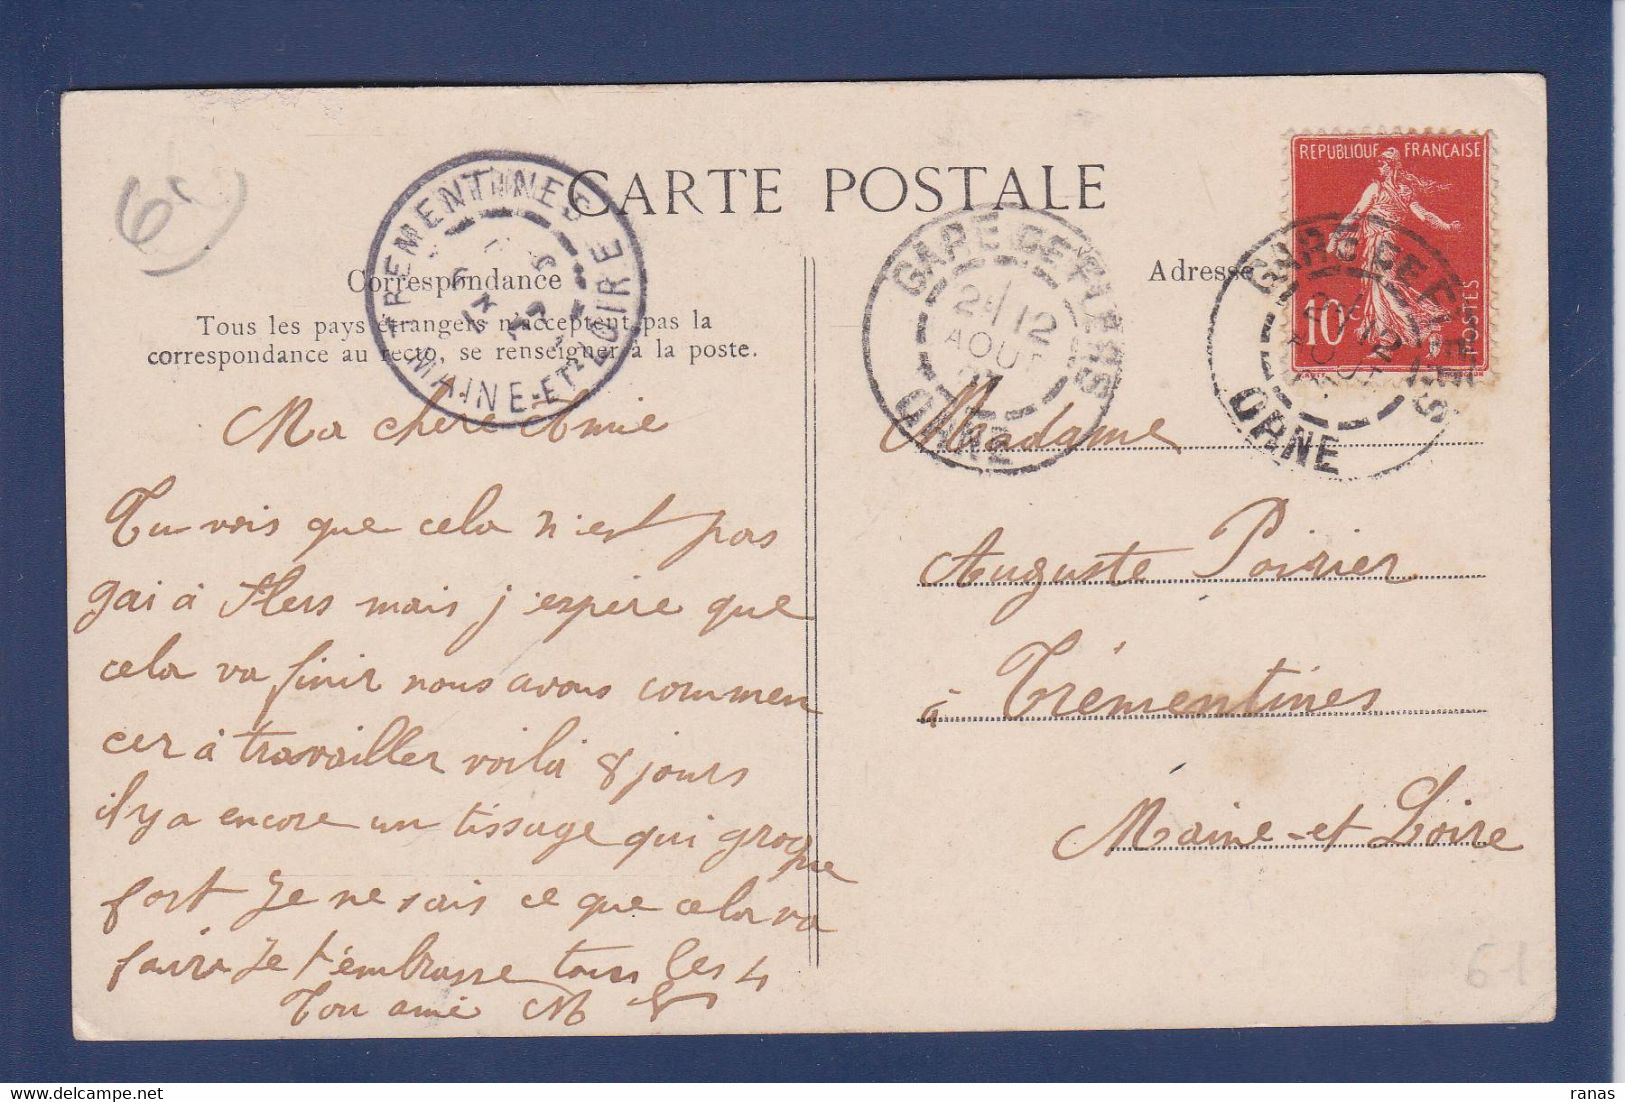 CARTE POSTALE
Correspondance
Tous les pays étrangers n'acceptent pas la
correspondance au recto, se renseigner à la poste.
Adresse
REPUBLIQUE FRANÇAISE
10
POSTES
TREMENTINES
MAINE-ET-LOIRE
GARE DE FLERS
24 12
AOUT
ORNE
GARE DE FLERS
ORNE
Ma chere Amie
Tu vois que cela n'est pas
gai à Flers mais j'espère que
cela va finir nous avons commen
cer à travailler voilà 8 jours
il y a encore un tissage qui
fort Je ne sais ce que cela va
faire Je t'embrasse tous les 4
Ton amie M
Madame
Auguste Poirier
à Trémentines
Maine-et Loire
61
ranas